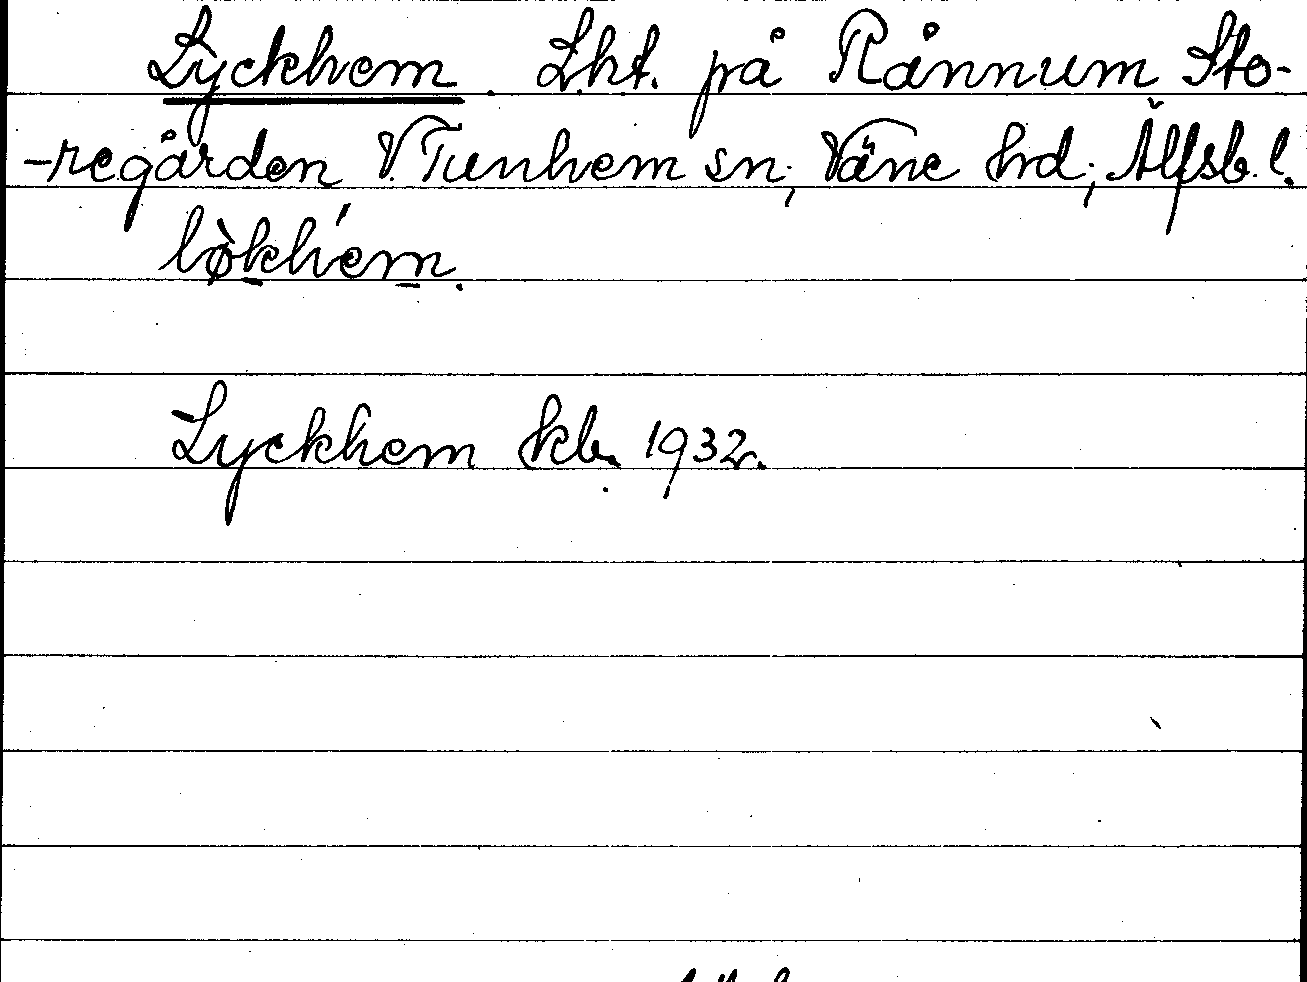 Lyckhem. L.ht. på Rånnum Sto-
-regården V. Tunhem sn; Väne hrd; Älfsb. l.
lø̀khém.
Lyckhem kb. 1932.